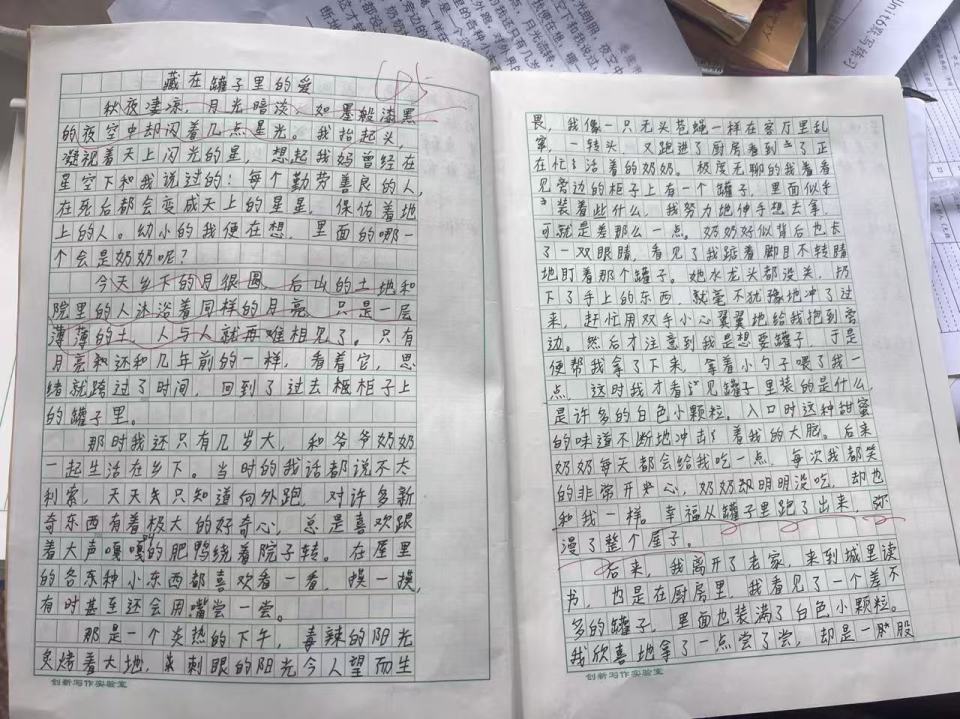 藏在罐子里的爱
45
秋夜凄凉，月光暗淡，如墨般漆黑
的夜空中却闪着几点星光。我抬起头，
凝视着天上闪光的星，想起我妈曾经在
星空下和我说过的：每个勤劳善良的人，
在死后都会变成天上的星星，保佑着地
上的人。幼小的我便在想，里面的哪一
个会是奶奶呢？
今天乡下的月很圆，后山的土地和
院里的人沐浴着同样的月亮，只是一层
薄薄的土，人与人就再难相见了。只有
月亮还和几年前的一样，看着它，思
绪就跨过了时间，回到了过去柜子上
的罐子里。
那时我还只有几岁大，和爷爷奶奶
一起生活在乡下。当时的我话都说不大
利索，天天只知道向外跑，对许多新
奇东西有着极大的好奇心，总是喜欢跟
着大声嘎嘎的肥鸭绕着院子转。在屋里
的各种小东西都喜欢看一看，摸一摸，
有时甚至还会用嘴尝一尝。
那是一个炎热的下午，毒辣的阳光
炙烤着大地，刺眼的阳光令人望而生
创新写作实验室
畏，我像一只无头苍蝇一样在客厅里乱
窜，一转头，又跑进了厨房看到了正
在忙活着的奶奶。极度无聊的我看看
见旁边的柜子上有一个罐子，里面似乎
装着些什么，我努力地伸手想去拿，
可就是差那么一点。奶奶好似背后也长
了一双眼睛，看见了我踮着脚目不转睛
地盯着那个罐子。她水龙头都没关，扔
下了手上的东西，就毫不犹豫地冲了过
来，赶忙用双手小心翼翼地给我抱到旁
边。然后才注意到我是想要罐子，于是
便帮我拿了下来，拿着小勺子喂了我一
点，这时我才看见罐子里装的是什么，
是许多的白色小颗粒。入口时这种甜蜜
的味道不断地冲击着我的大脑。后来
奶奶每天都会给我吃一点，每次我都笑
的非常开心，奶奶却明明没吃，却也
和我一样。幸福从罐子里跑了出来，弥
漫了整个屋子。
后来，我离开了老家，来到城里读
书，也是在厨房里，我看见了一个差不
多的罐子，里面也装满了白色小颗粒。
我欣喜地拿了一点尝了尝，却是一股
创新写作实验室